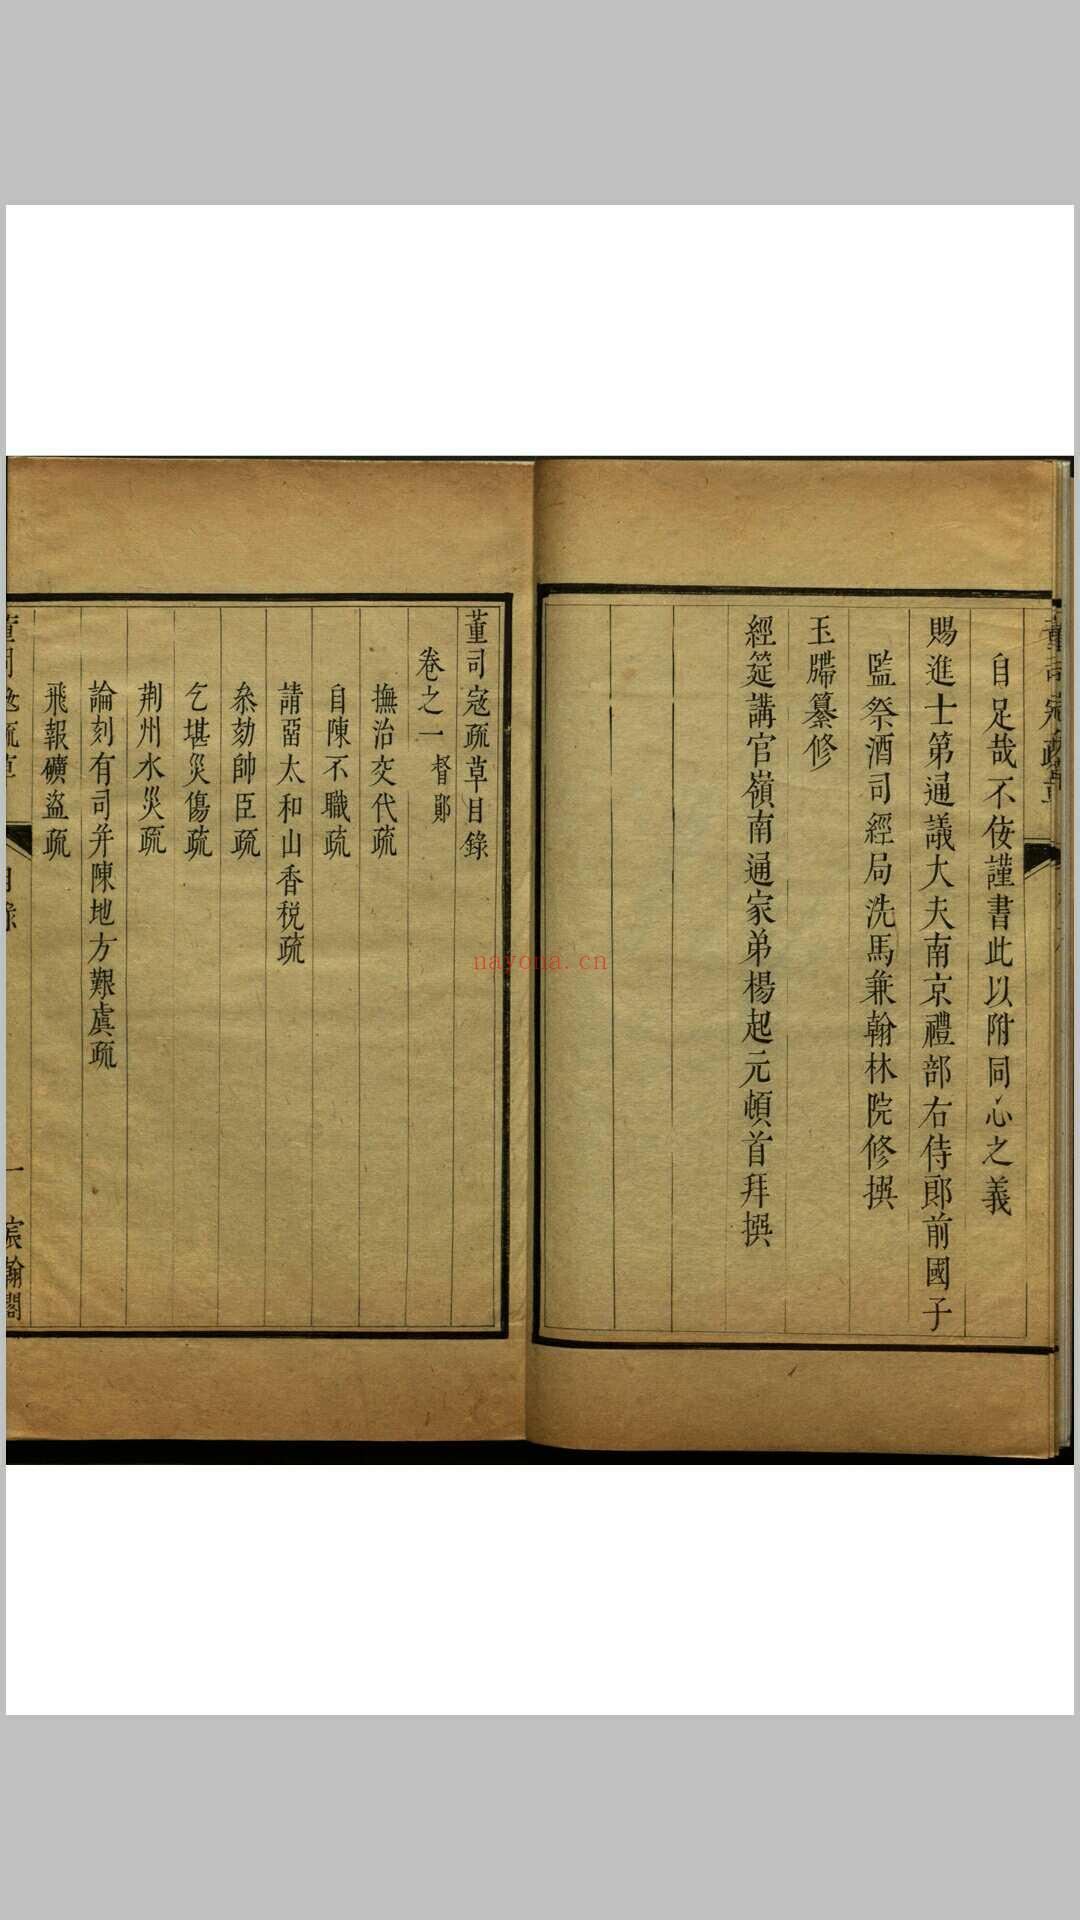 自足哉不佞謹書此以附同心之義
賜進士第通議大夫南京禮部右侍郎前國子
監祭酒司經局洗馬兼翰林院修撰
玉牒纂修
經筵講官嶺南通家弟楊起元頓首拜撰
董司寇疏草目錄
卷之一 督鄖
撫治交代疏
自陳不職疏
請畱太和山香税疏
叅劾帥臣疏
乞堪災傷疏
荆州水災疏
論刻有司并陳地方艱虞疏
飛報礦盜疏
一 宸翰閣
nayona.cn